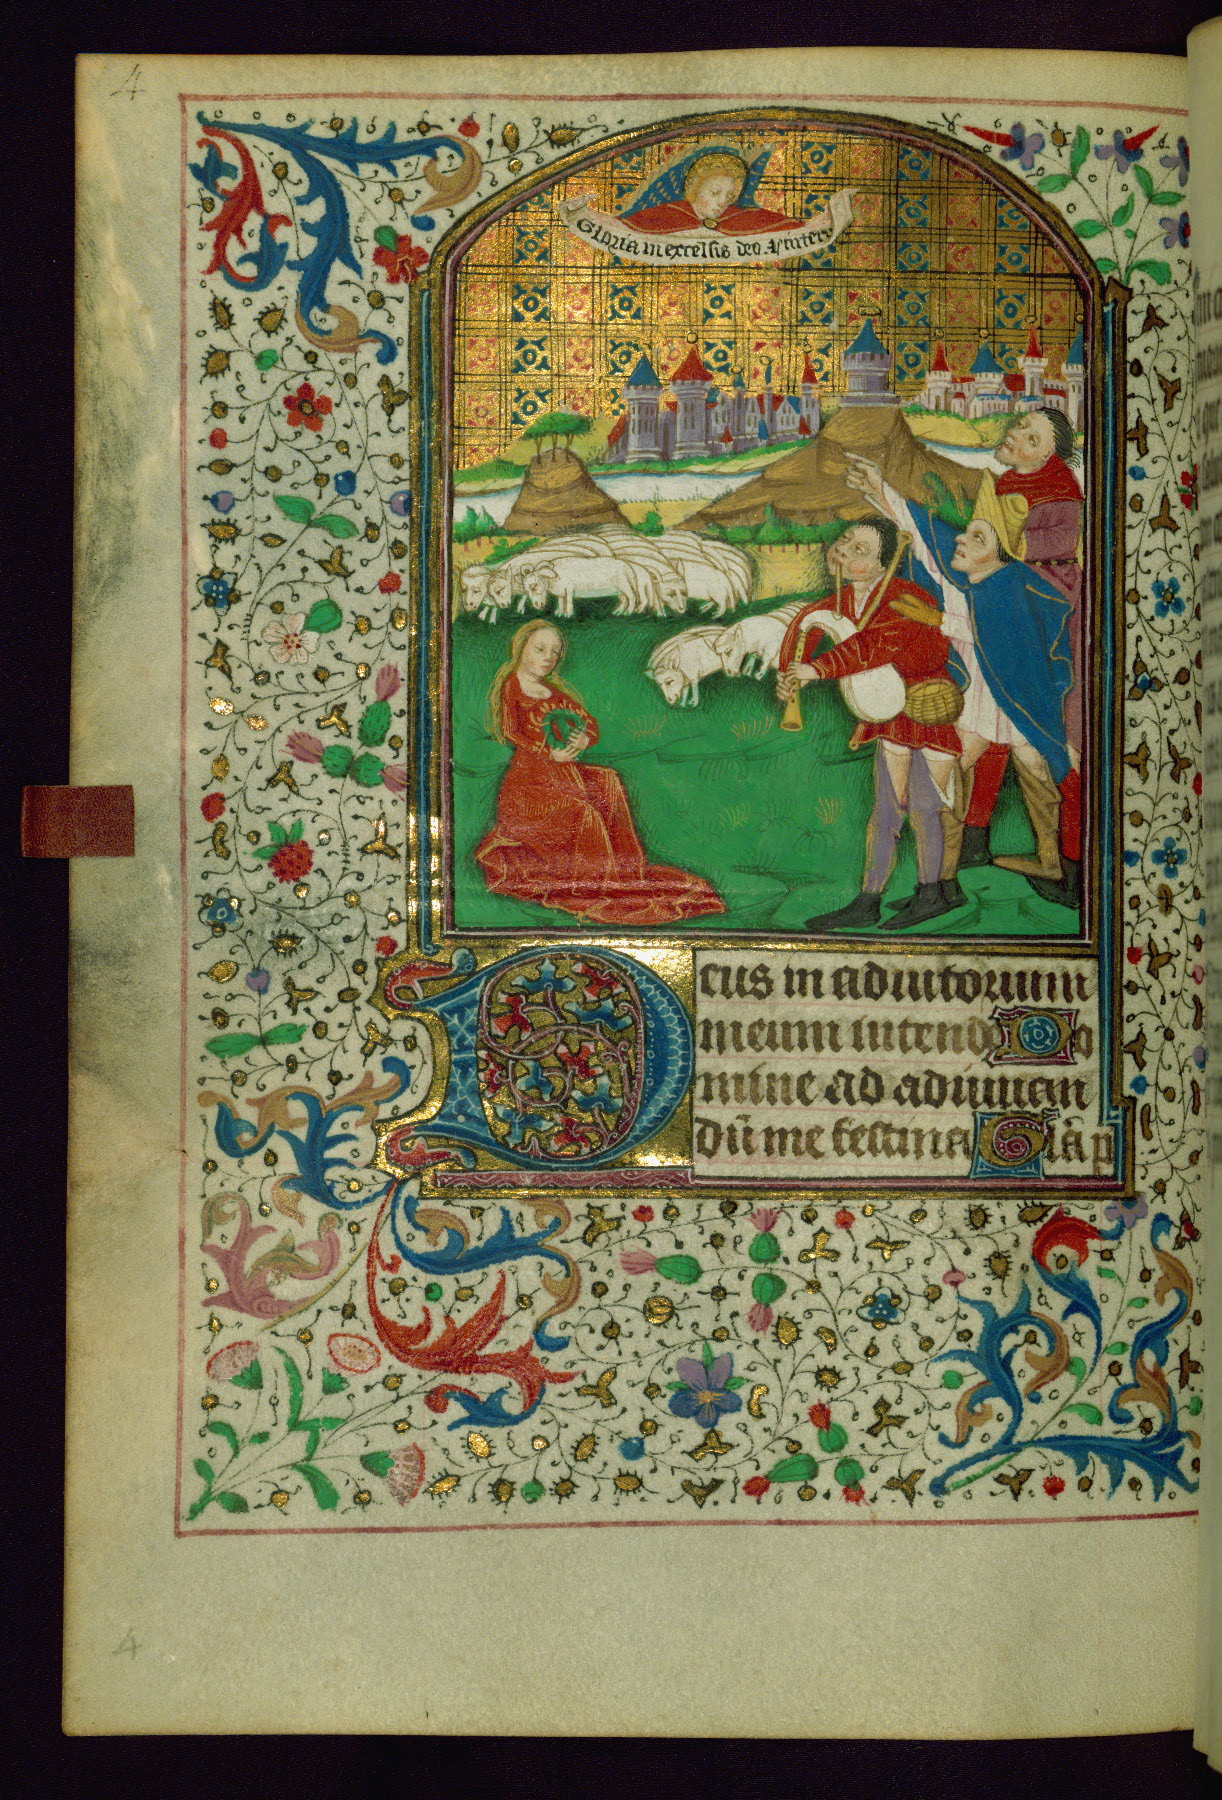 4
Gloria in excelsis deo. Et in terr
Deus in adiutorium
meum intende Do
mine ad adiuuan
dū me festina Glā p
4